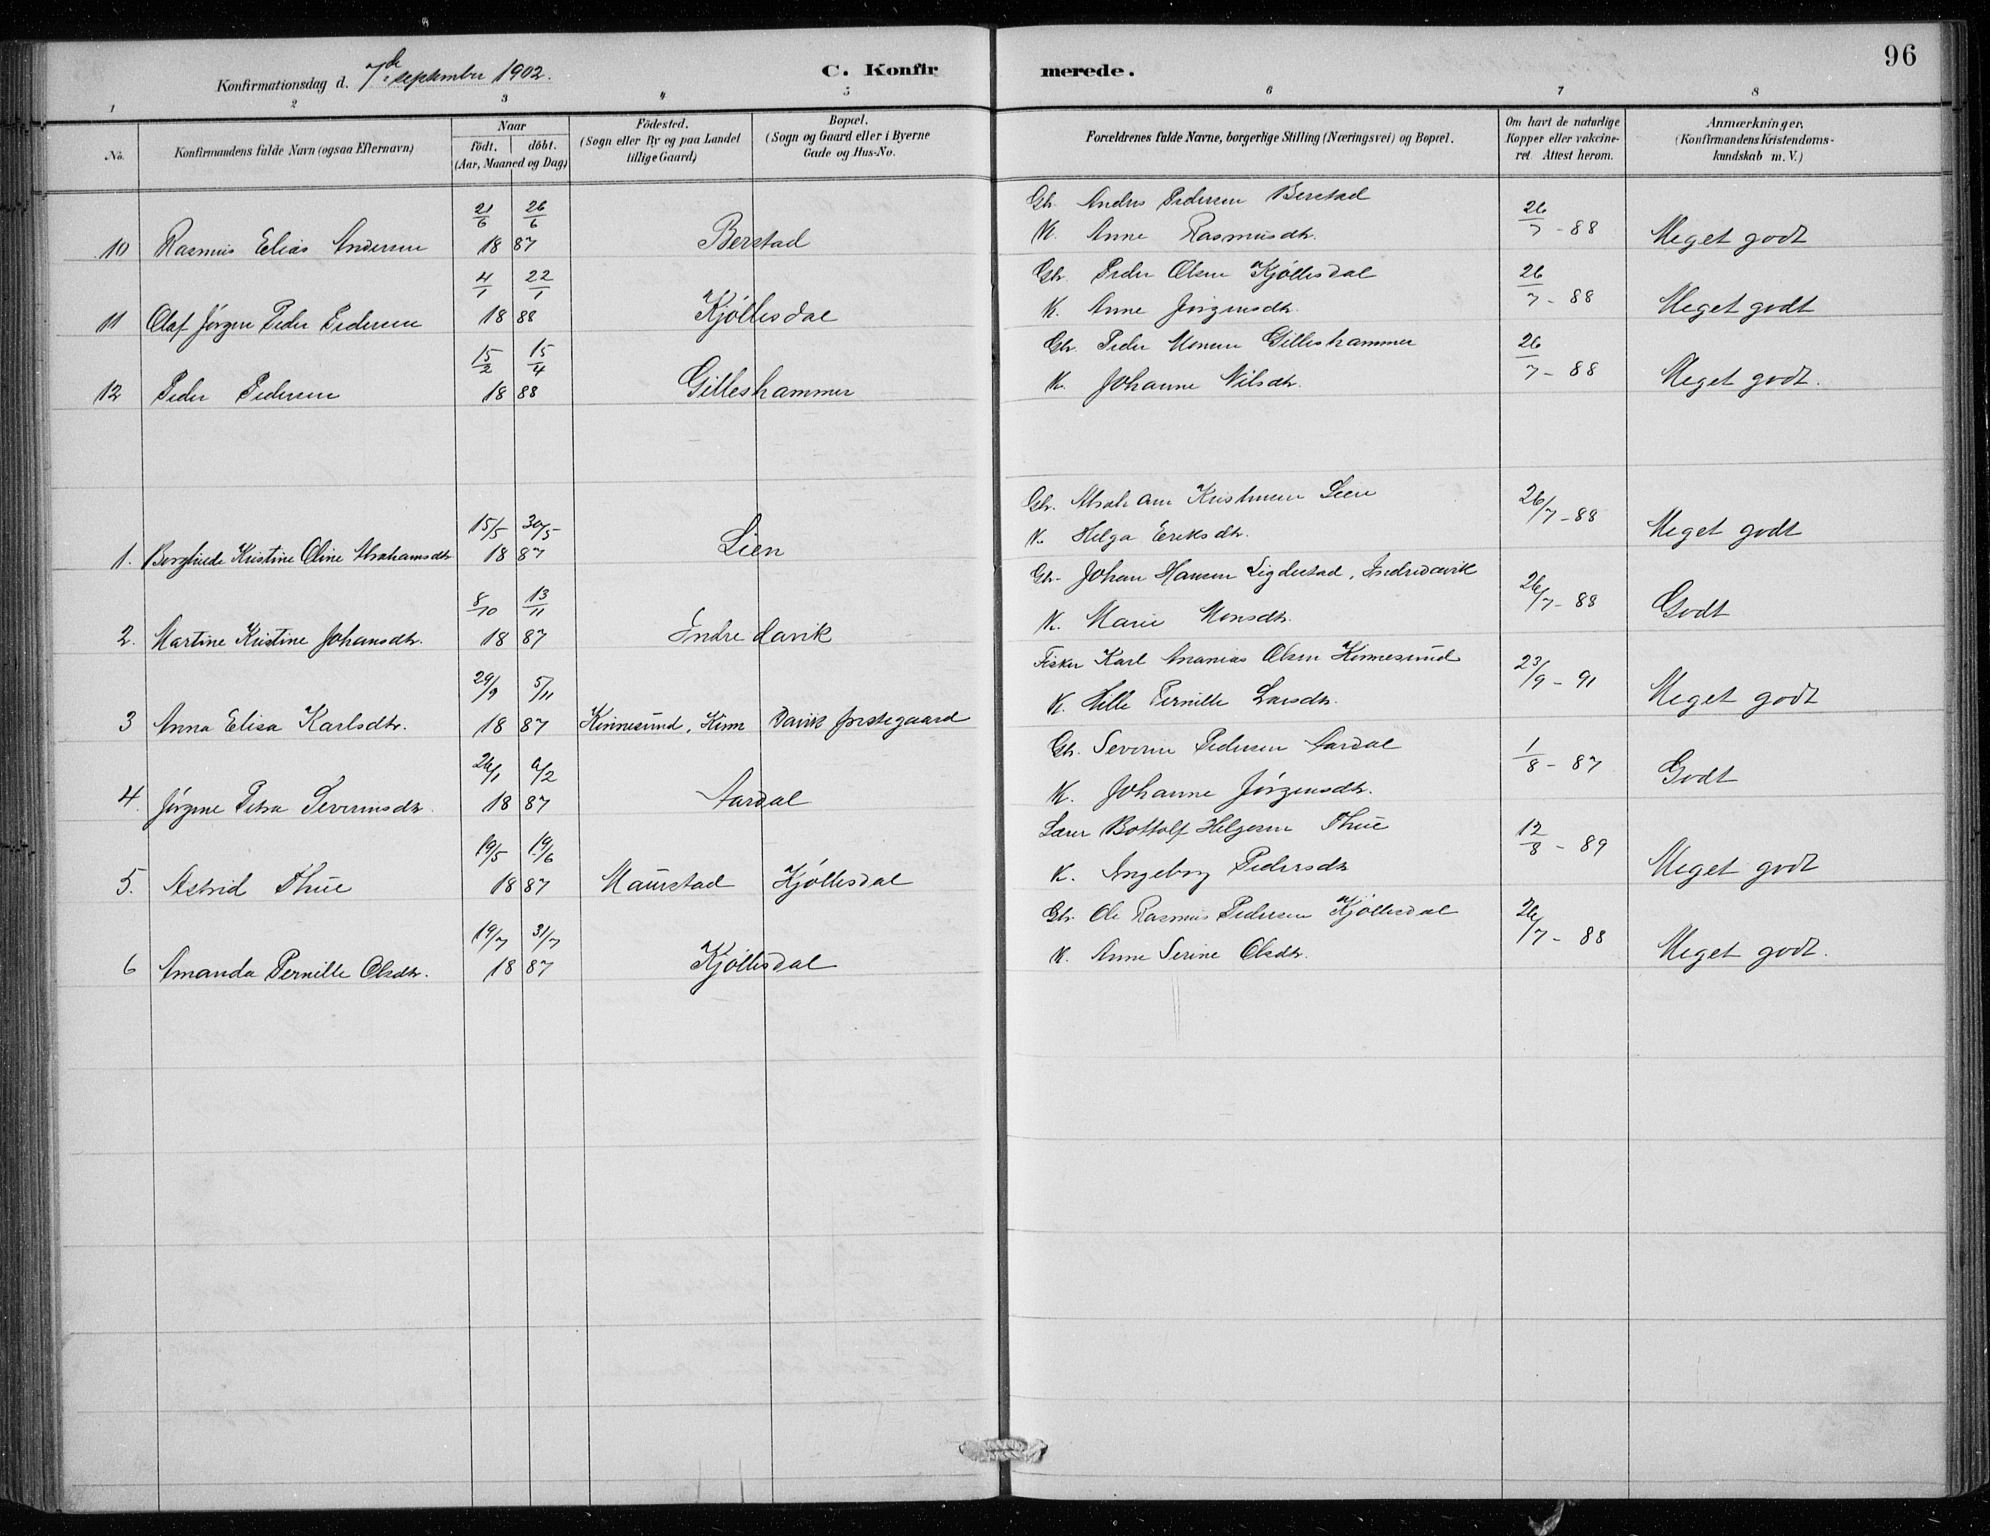 96
Konfirmationsdag d. 7de september 1902.
C. Konfirmerede.
1 2 3 4 5 6 7 8
No.
Konfirmandens fulde Navn (ogsaa Efternavn)
Naar
födt. döbt.
(Aar, Maaned og Dag)
Födested.
(Sogn eller By og paa Landet
tillige Gaard)
Bopæl.
(Sogn og Gaard eller i Byerne
Gade og Hus-No.
Forældrenes fulde Navne, borgerlige Stilling (Næringsvei) og Bopæl.
Om havt de naturlige
Kopper eller vakcine-
ret. Attest herom.
Anmærkninger.
(Konfirmandens Kristendoms-
kundskab m. V.)
21/6 26/6 Gbr. Anders Pedersen Berstad 26/7 - 88
10 Rasmus Elias Andersen 1887 Berstad K. Anne Rasmusdtr. Meget godt
4/1 22/1 Gbr. Peder Olsen Kjøllesdal 26/7 - 88
11 Olaf Jørgen Peder Pedersen 1888 Kjøllesdal K. Anne Jørgensdtr. Meget godt
15/2 15/4 Gbr. Peder Monsen Gilleshammer 26/7 - 88
12 Peder Pedersen 1888 Gilleshammer K. Johanne Nilsdtr. Meget godt.
15/5 30/5 Gbr. Abraham Kristensen Lien 26/7 - 88
1. Borghilde Kristine Oline Abrahamsdtr 1887 Lien K. Helga Eriksdtr. Meget godt
8/10 13/11 Gbr. Johan Hansen Rigdestad, Indredavik 26/7 - 88
2. Martine Kristine Johansdtr. 1887 Indre davik K. Marie Monsdtr. Godt
29/9 5/11 Fisker Karl Ananias Olsen Kinnesund 23/9 - 91
3 Anna Elisa Karlsdtr. 1887 Kinnesund, Kinn Davik præstegaard K. Hille Pernille Larsdtr. Meget godt
26/1 /2 Gbr. Severin Pedersen Aardal 1/8 - 87
4. Jørgine Petra Severinsdtr. 1887 Aardal K. Johanne Jørgensdtr. Godt
19/5 19/6 Lærer Bottolf Helgesen Thue 12/8 - 89
5. Astrid Thue 1887 Maurstad Kjøllesdal K. Ingeborg Pedersdtr Meget godt
19/7 31/7 Gbr. Ole Rasmus Pedersen Kjøllesdal 26/7 - 88
6 Amanda Pernille Olsdtr. 1887 Kjøllesdal K. Anne Serine Olsdtr. Meget godt.